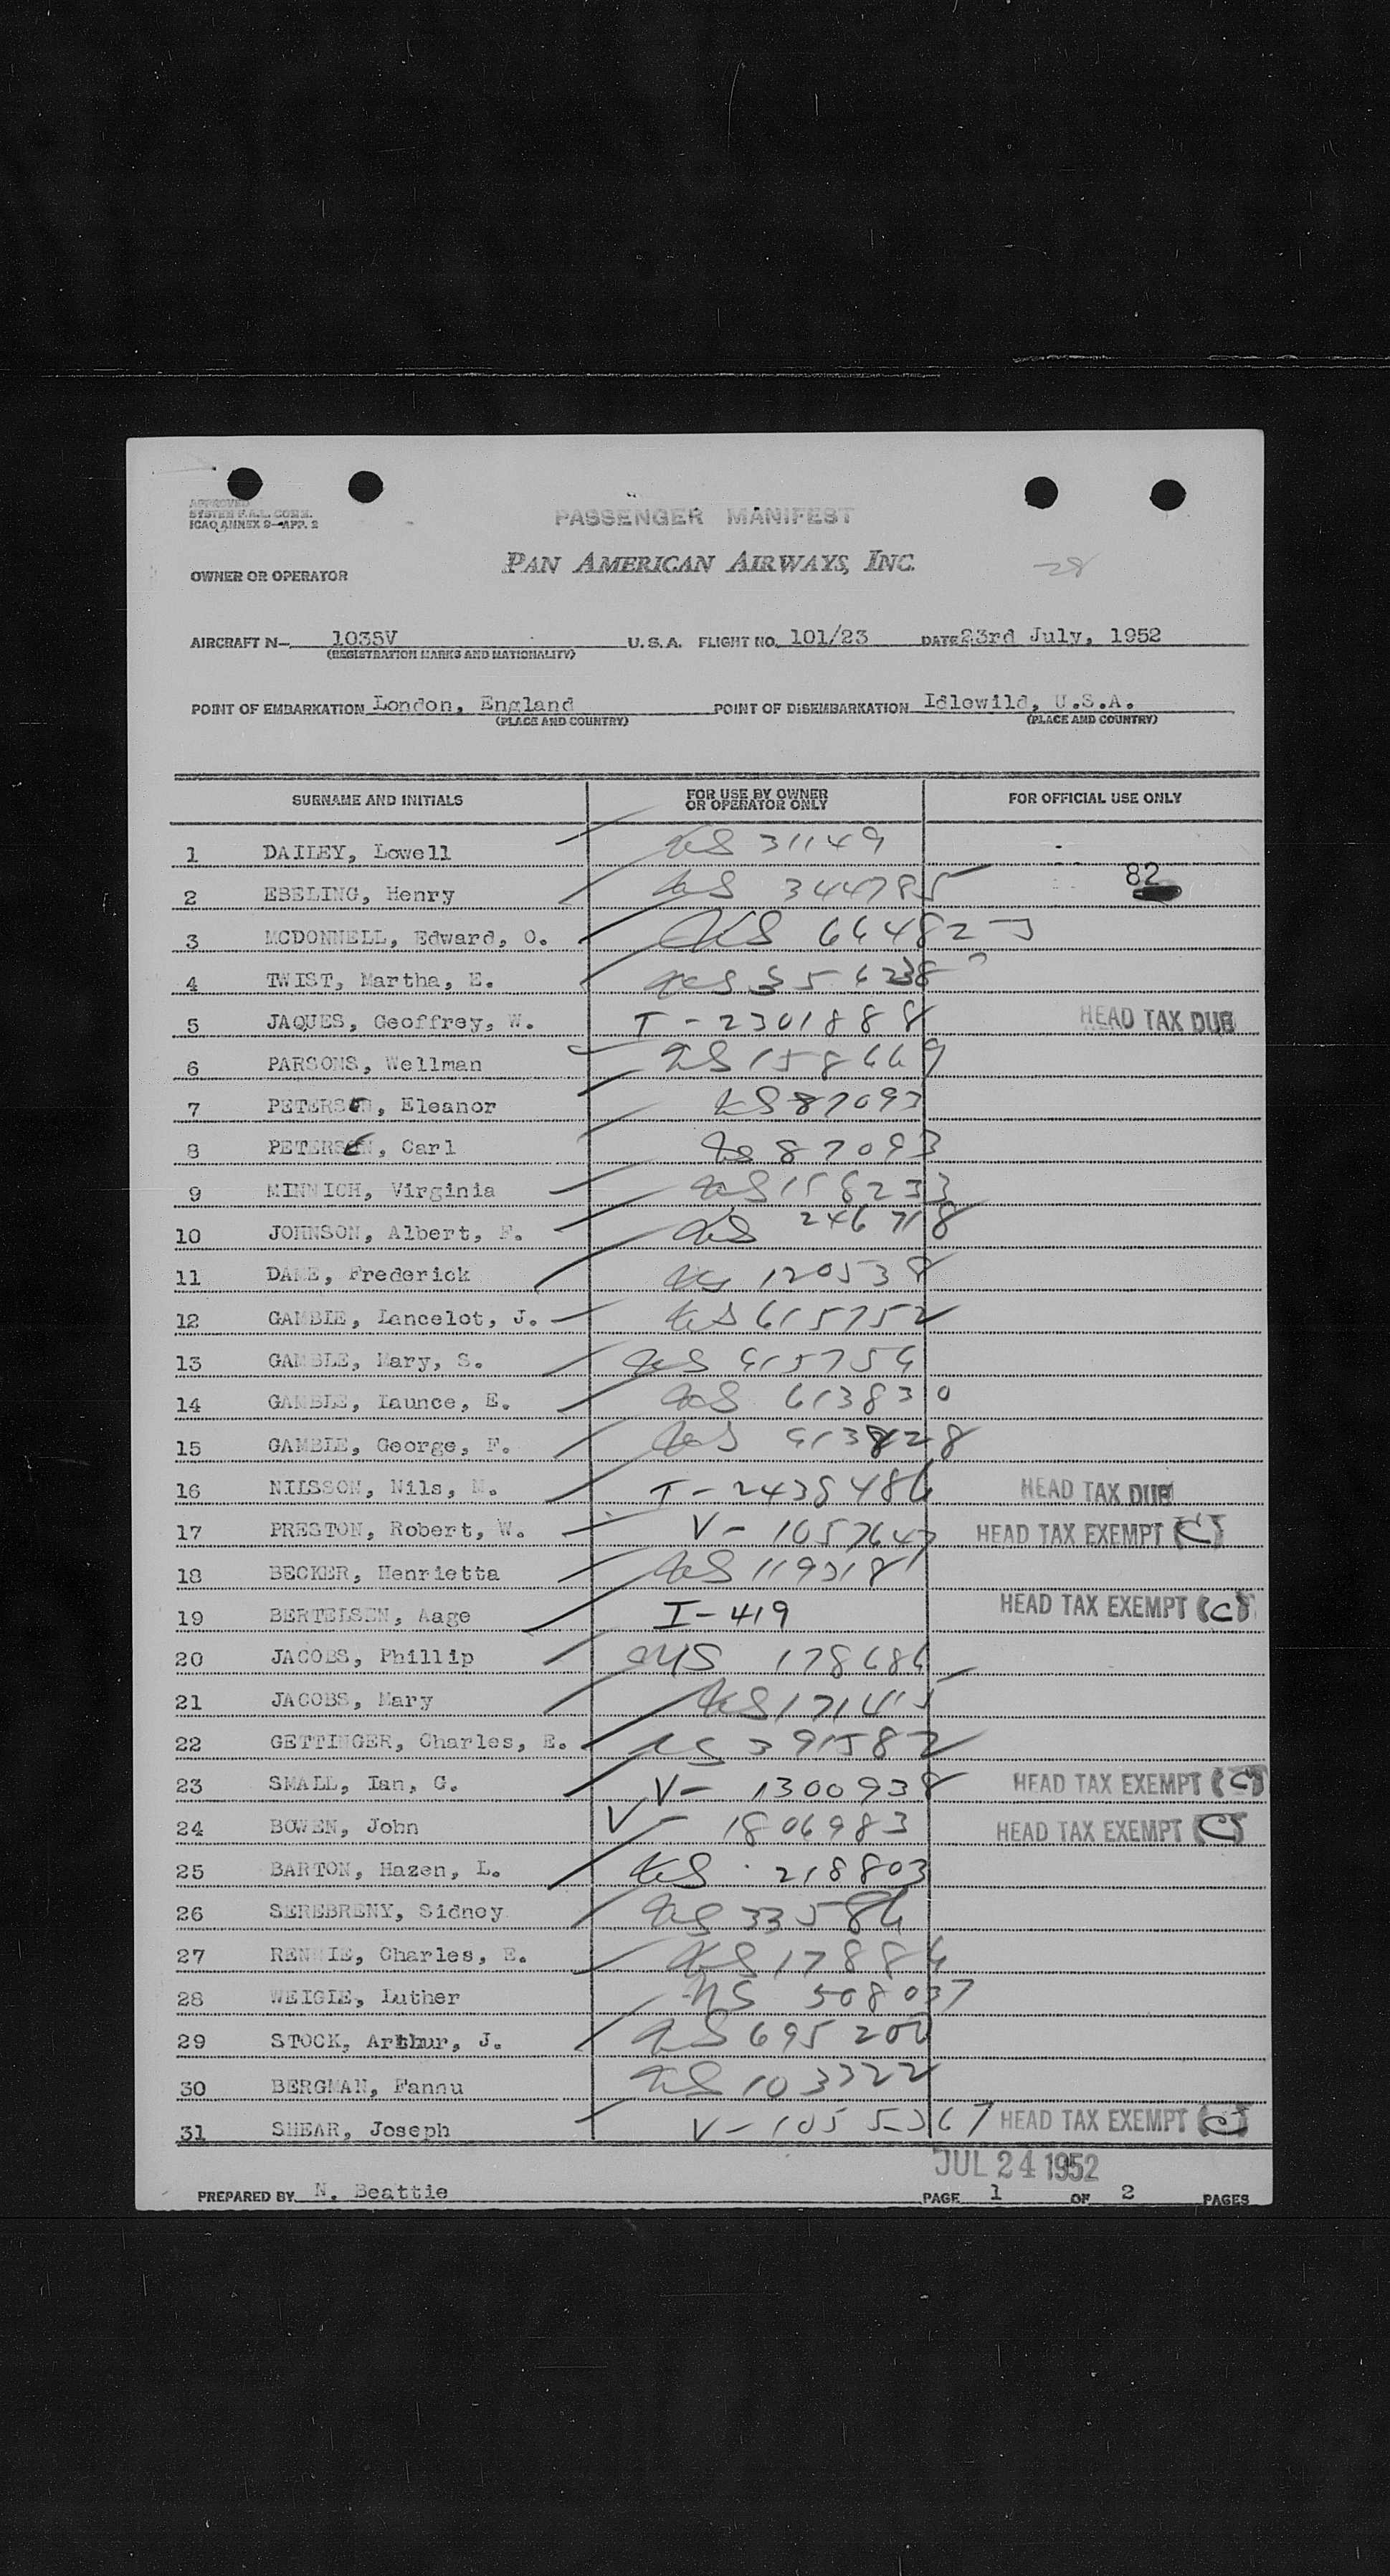 APPROVED
SYSTEM F.A.L. COMM.
ICAO ANNEX 9-APP. 2
PASSENGER MANIFEST
OWNER OR OPERATOR PAN AMERICAN AIRWAYS, INC. 28
AIRCRAFT N- 1035V U.S.A. FLIGHT NO. 101/23 DATE 23rd July, 1952
(REGISTRATION MARKS AND NATIONALITY)
POINT OF EMBARKATION London, England POINT OF DISEMBARKATION Idlewild, U.S.A.
(PLACE AND COUNTRY) (PLACE AND COUNTRY)
SURNAME AND INITIALS FOR USE BY OWNER OR OPERATOR ONLY FOR OFFICIAL USE ONLY
1 DAILEY, Lowell US 31149
2 EBELING, Henry US 344785 82
3 MCDONNELL, Edward, O. US
4 TWIST, Martha, E. US
5 JAQUES, Geoffrey, W. I-2301888 HEAD TAX DUE
6 PARSONS, Wellman US 158669
7 PETERSEN, Eleanor US 87093
8 PETERSEN, Carl US 87093
9 MINNICH, Virginia US 158233
10 JOHNSON, Albert, F. US 246718
11 DAME, Frederick US 120538
12 GAMBLE, Lancelot, J. US 615752
13 GAMBLE, Mary, S. US 615754
14 GAMBLE, Launce, E. US 613830
15 GAMBLE, George, F. US 613828
16 NILSSON, Nils, N. I-2438486 HEAD TAX DUE
17 PRESTON, Robert, W. V-1057647 HEAD TAX EXEMPT (C)
18 BECKER, Henrietta US 119318
19 BERTELSEN, Aage I-419 HEAD TAX EXEMPT (C)
20 JACOBS, Phillip US 178686
21 JACOBS, Mary US
22 GETTINGER, Charles, E. US 391582
23 SMALL, Ian, G. V-1300938 HEAD TAX EXEMPT (C)
24 BOWEN, John V-1806983 HEAD TAX EXEMPT (C)
25 BARTON, Hazen, L. US 218803
26 SEREBRENY, Sidney US 33586
27 RENNIE, Charles, E. US 17886
28 WEIGIE, Luther US 508037
29 STOCK, Arthur, J. US 695200
30 BERGMAN, Fannu US 103322
31 SHEAR, Joseph V-1055367 HEAD TAX EXEMPT (C)
JUL 24 1952
PREPARED BY N. Beattie PAGE 1 OF 2 PAGES